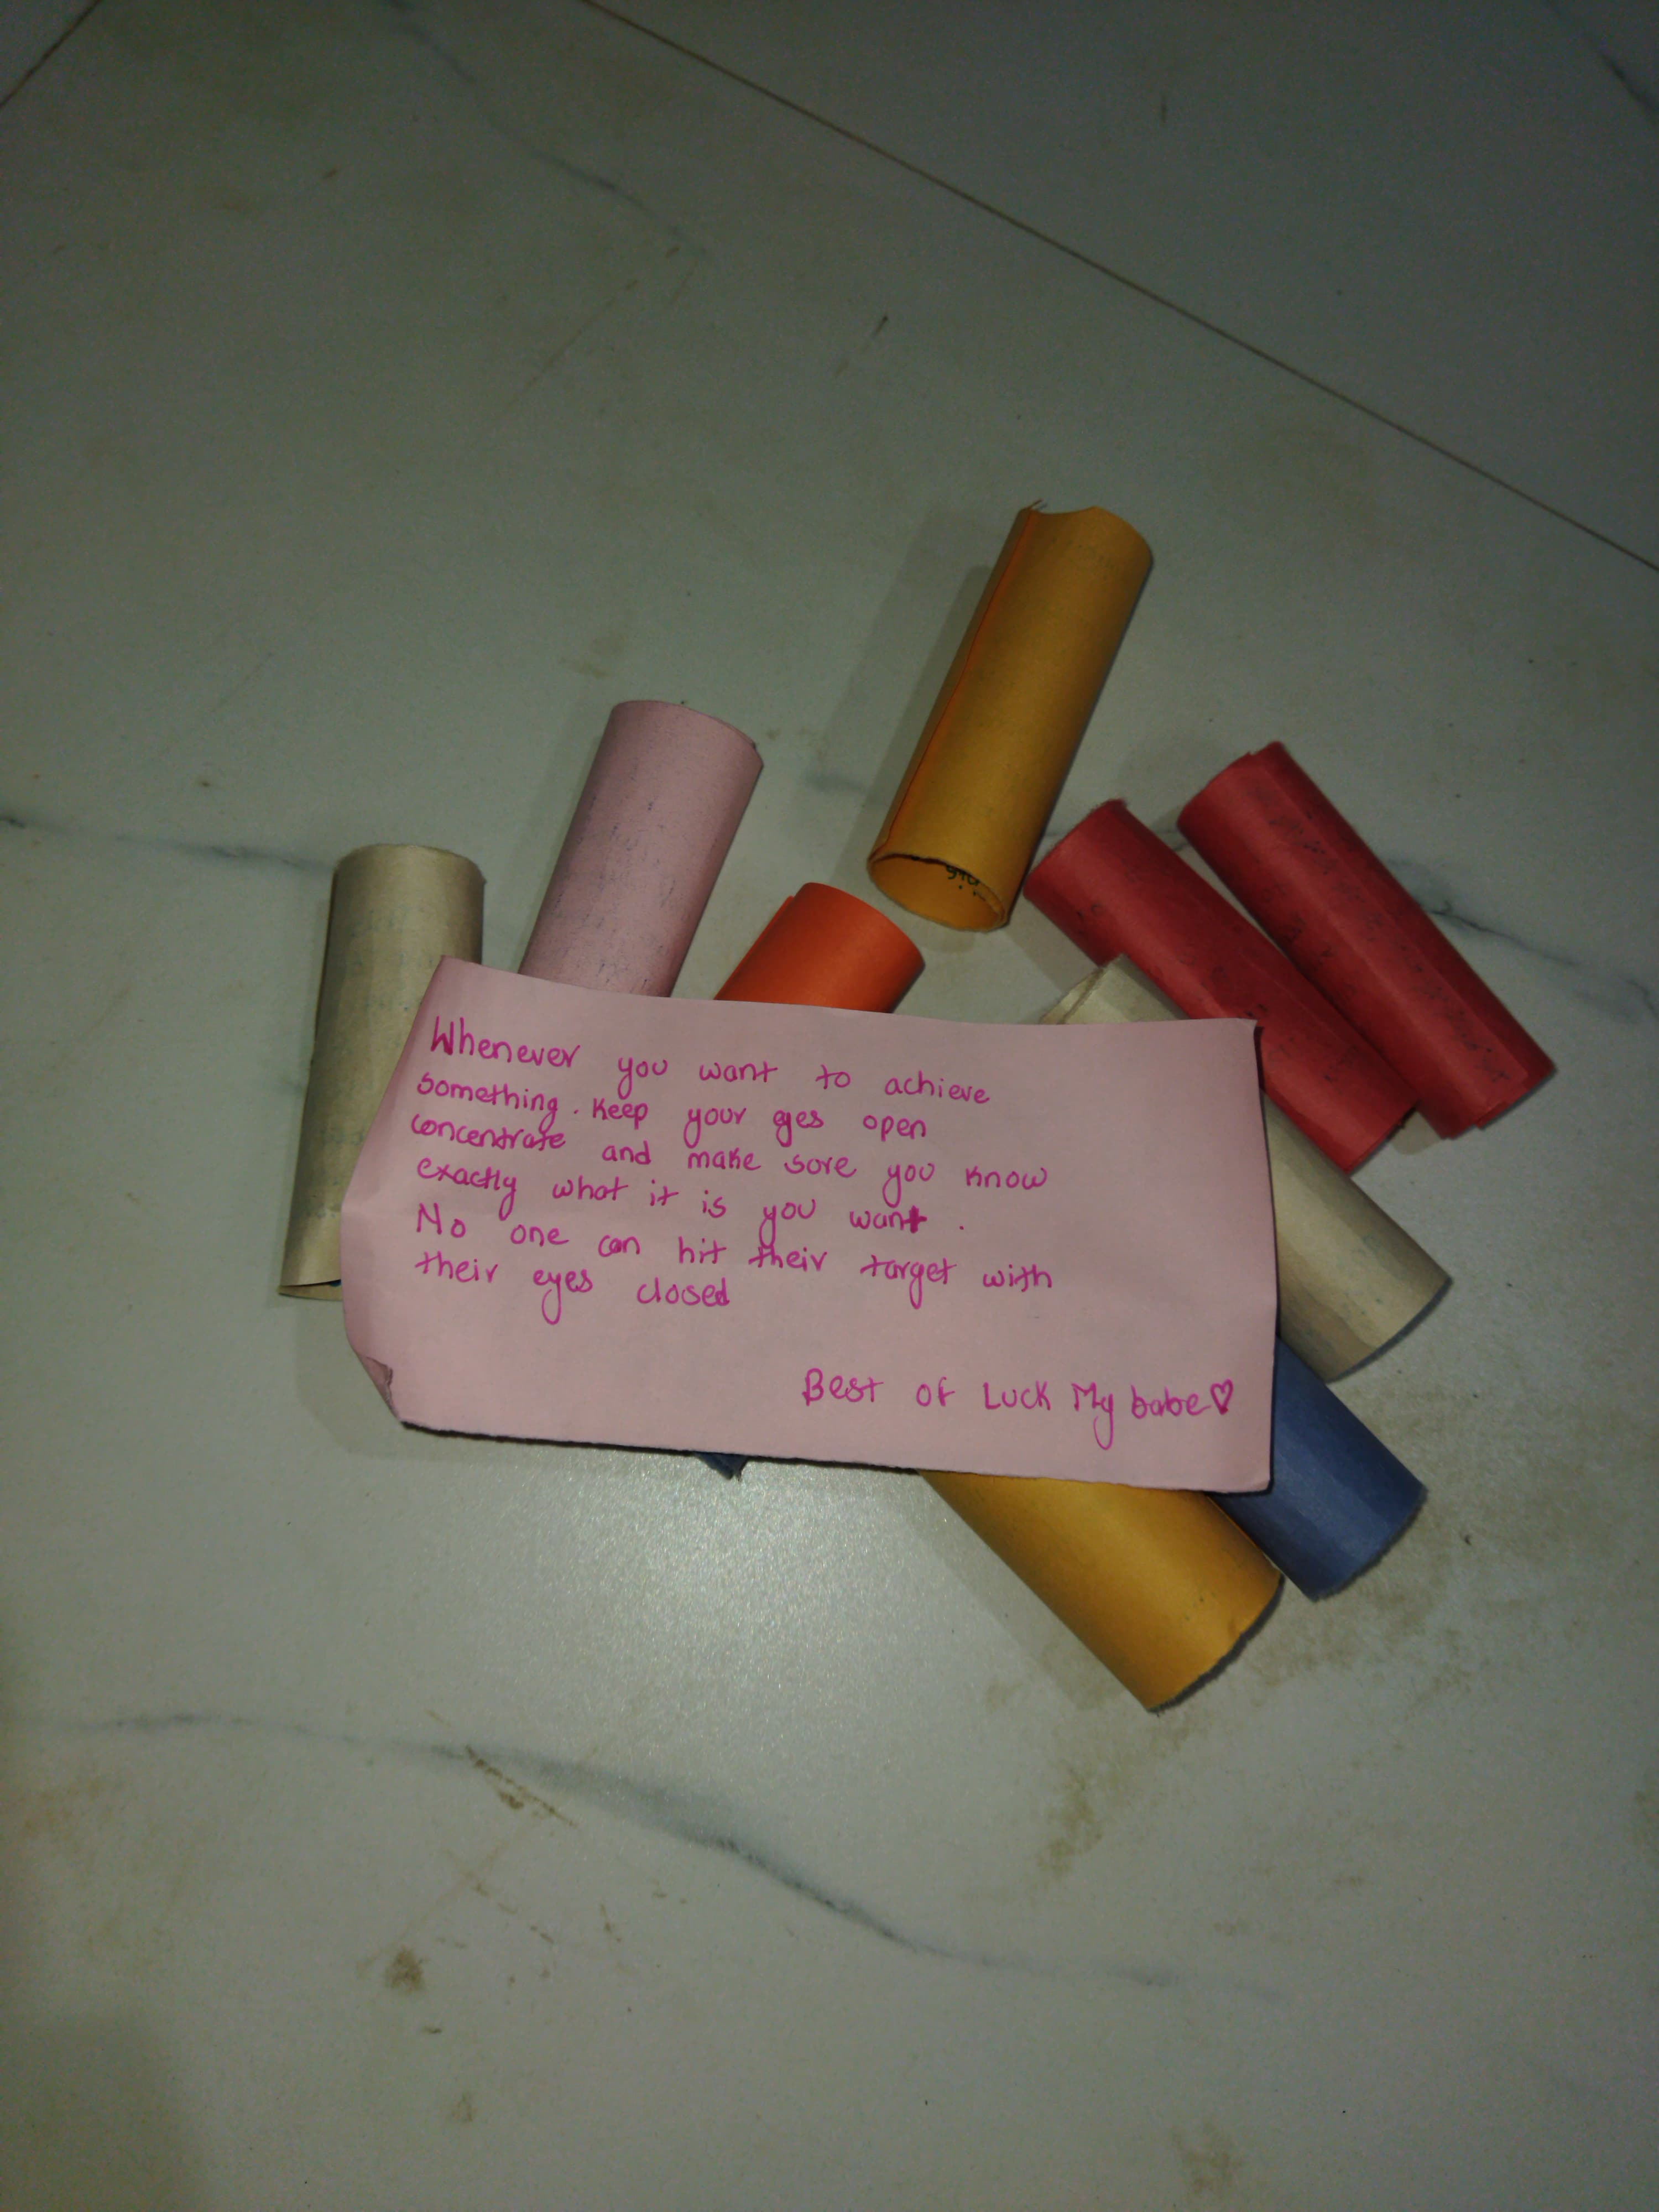 Whenever you want to achieve
something. Keep your eyes open
concentrate and make sure you know
exactly what it is you want.
No one can hit their target with
their eyes closed
Best of Luck My babe♡